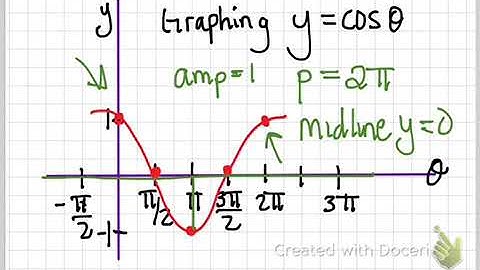 y
Graphing y = cos θ
amp = 1 p = 2π
midline y = 0
1
θ
-π/2 π/2 π 3π/2 2π 3π
-1
Created with Doceri